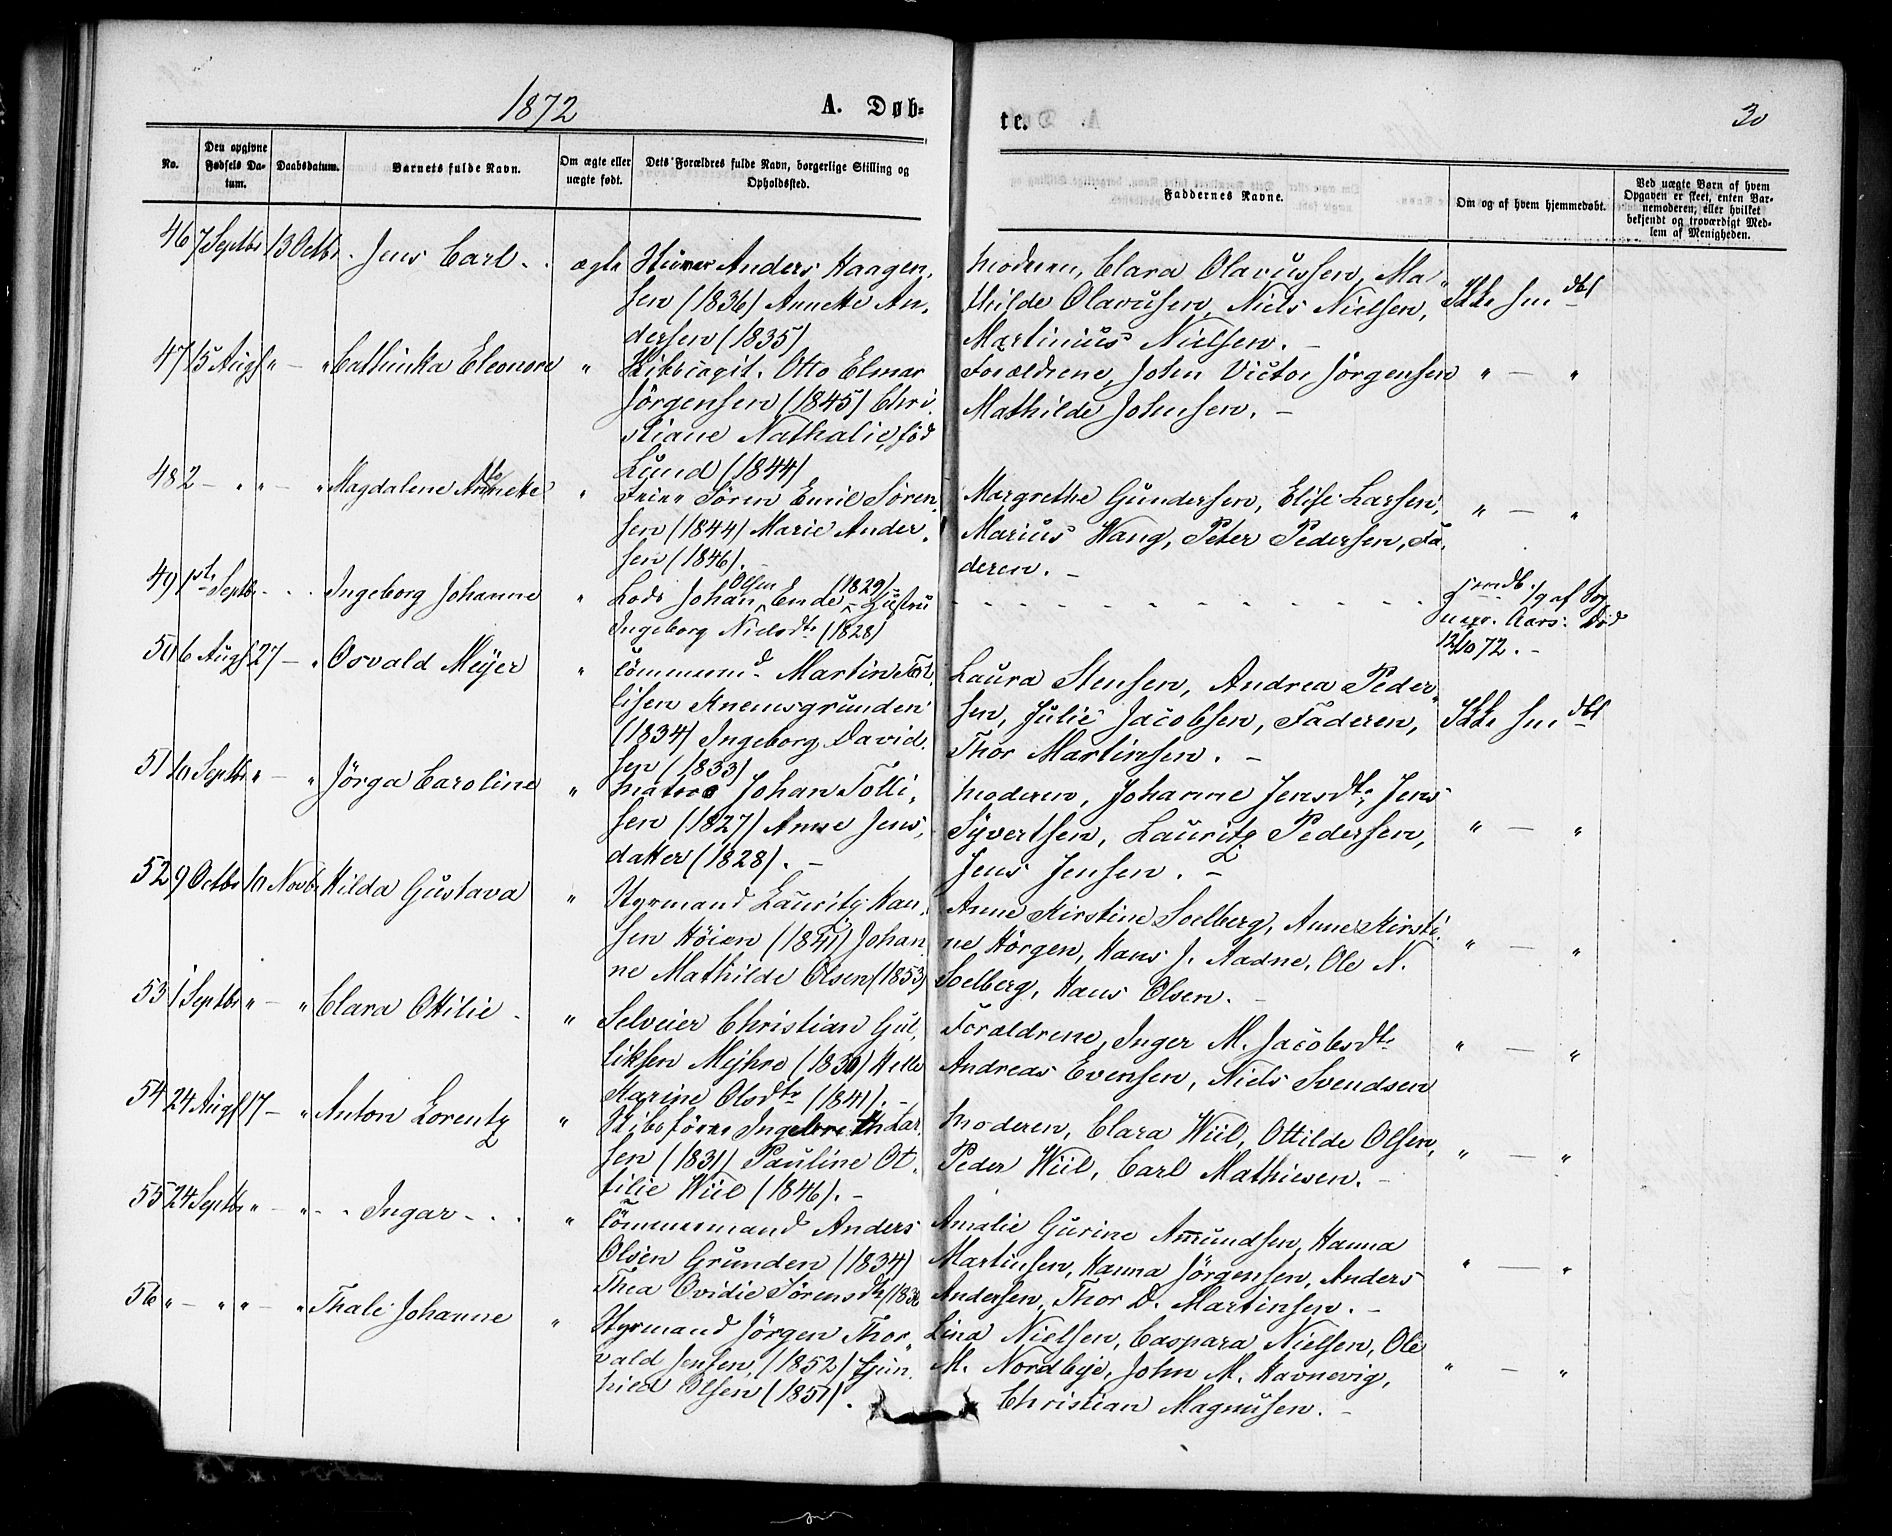 1872
A. Døb=
te.
30
No.
Den opgivne Fødsels Da-
tum.
Daabsdatum.
Barnets fulde Navn.
Om ægte eller
uægte født.
Dets Forældres fulde Navn, borgerlige Stilling og
Opholdssted.
Faddernes Navne.
Om og af hvem hjemmedøbt.
Ved uægte Børn af hvem
Opgaven er skeet, enten Bar-
nemoderen, eller hvilket
bekjendt og troværdigt Med-
lem af Menigheden.
46 7 Septbr 13 Octbr. Jens Carl. ægte Anders Haagen.
sen (1836) Annette An.
dersen (1835)
Moderen, Clara Olavussen, Ma„
thilde Olavusen, Niels Nielsen,
Martinius Nielsen. —
Ikke hm dbt
47 15 Augs „ — „ Cathinka Eleonore „ Skibscapit. Otto Elmar
Jörgensen (1845) Chri.
stiane Nathalie, föd
Lund (1844)
Forældrene, John Victor Jörgensen
Mathilde Johnsen. —
„ — „
48 2 — „ „ — „ Magdalene Annette „ Sören Emil Sören.
sen (1844) Marie Ander.
sen (1846). —
Margrethe Gundersen, Elise Larsen,
Marius Wang, Peter Pedersen, Fa.
deren. —
„ — „
49 1ste Septbr . . . Ingeborg Johanne „ Lods Johan Olsen Ende (1829) Hustru
Ingeborg Nielsdtr (1828)
hmdb. 1/9 af
Aars: Död
12/10 72. —
50 6 Augs 27 — „ Osvald Meyer „ Tömmermd Martin Tol.
lisen Knemsgrunden
(1834) Ingeborg David.
sen (1833)
Laura Stensen, Andrea Peder„
sen, Julie Jacobsen, Faderen,
Thor Martinsen. —
Ikke hm dbt
51 10 Septbr „ — „ Jörga Caroline „ Matros Johan Tolli.
sen (1827) Anne Jens.
datter (1828). —
Moderen, Johanne Jensdtr, Jens
Syvertsen, Lauritz Pedersen,
Jens Jensen. —
„ — „
52 9 Octbr 10 Novbr Hilda Gustava „ Styrmand Lauritz Han.
sen Höien (1841) Johan
ne Mathilde Olsen (1853)
Anne Kirstine Soelberg, Anne Kirsti.
ne Hörgen, Hans J. Aadne, Ole N.
Soelberg, Hans Olsen. —
„ — „
53 1 Septbr „ — „ Clara Ottilie . „ Selveier Christian Gul.
liksen Mejhre (1830) Helle
Karine Olsdtr (1841). —
Forældrene, Inger M. Jacobsdtr
Andreas Evensen, Niels Svendsen
„ — „
54 24 Augs 17 — „ Anton Lorentz „ Skibsförer Ingebreth Lar.
sen (1831) Pauline Ot.
tilie Wiil (1846). —
Moderen, Clara Wiil, Ottilde Olsen,
Peder Wiil, Carl Mathiesen. —
„ — „
55 24 Septbr „ — „ . . Ingar . . . „ Tömmermand Anders
Olsen Grunden (1834)
Thea Ovidie Sörensdtr
Amalie Gurine Amundsen, Hanna
Martinsen, Hanna Jörgensen, Anders
Andersen, Thor D. Martinsen. —
„ — „
56 „ — „ „ — „ Thale Johanne „ Styrmand Jörgen Thor„
vald Jensen, (1852) Gun.
hild Olsen (1851).
Lina Nielsen, Caspara Nielsen, Ole
M. Nordbye, John M. Havnevig,
Christian Magnusen. —
„ — „